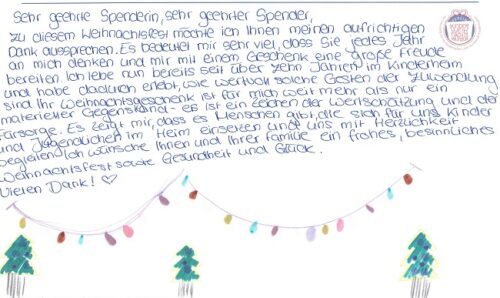 Sehr geehrte Spenderin, sehr geehrter Spender,
zu diesem Weihnachtsfest möchte ich Ihnen meinen aufrichtigen
Dank aussprechen. Es bedeutet mir sehr viel, dass Sie jedes Jahr
an mich denken und mir mit einem Geschenk eine große Freude
bereiten. Ich lebe nun bereits seit über zehn Jahren im Kinderheim
und habe dadurch erlebt, wie wertvoll solche Gesten der Zuwendung
sind. Ihr Weihnachtsgeschenk ist für mich weit mehr als nur ein
materieller Gegenstand - es ist ein Zeichen der Wertschätzung und der
Fürsorge. Es zeigt mir, dass es Menschen gibt, die sich für uns Kinder
und Jugendlichen im Heim einsetzen und uns mit Herzlichkeit
begleiten. Ich wünsche Ihnen und Ihrer Familie ein frohes, besinnliches
Weihnachtsfest sowie Gesundheit und Glück.
Vielen Dank! ♡